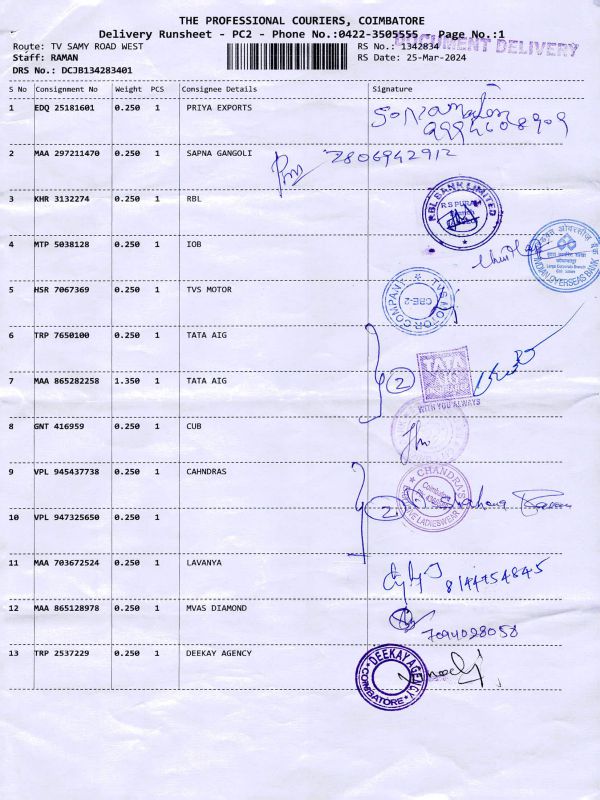 THE PROFESSIONAL COURIERS, COIMBATORE
Delivery Runsheet - PC2 - Phone No.:0422-3505555 Page No.:1
DOCUMENT DELIVERY
Route: TV SAMY ROAD WEST RS No.: 1342834
Staff: RAMAN RS Date: 25-Mar-2024
DRS No.: DCJB134283401
S No Consignment No Weight PCS Consignee Details Signature
1 EDQ 25181601 0.250 1 PRIYA EXPORTS
2 MAA 297211470 0.250 1 SAPNA GANGOLI 7806942912
3 KHR 3132274 0.250 1 RBL
RBL BANK LIMITED
R S PURAM
4 MTP 5038128 0.250 1 IOB
INDIAN OVERSEAS BANK
5 HSR 7067369 0.250 1 TVS MOTOR
TVS MOTOR COMPANY
CBE-2
6 TRP 7650100 0.250 1 TATA AIG
2
TATA
AIG
WITH YOU ALWAYS
7 MAA 865282258 1.350 1 TATA AIG
8 GNT 416959 0.250 1 CUB
9 VPL 945437738 0.250 1 CAHNDRAS
CHANDRA'S
Coimbatore
LADIESWEAR
2
10 VPL 947325650 0.250 1
11 MAA 703672524 0.250 1 LAVANYA
8144454845
12 MAA 865128978 0.250 1 MVAS DIAMOND
7094028058
13 TRP 2537229 0.250 1 DEEKAY AGENCY
DEEKAY AGENCY
COIMBATORE